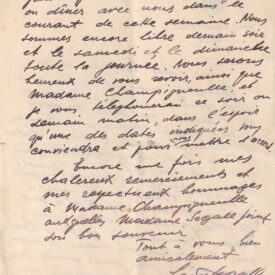 ou dîner avec nous dans le
courant de cette semaine. Nous
sommes encore libre demain soir
et le samedi et le dimanche
toute la journée. Nous serons
heureux de vous revoir, ainsi que
Madame Champigneulle et
je vous téléphonerai ce soir ou
demain matin, dans l'espoir
qu'une des dates indiquées vous
conviendra et pour mettre
Encore une fois mes
chaleureux remerciements et
mes respectueux hommages
à Madame Champigneulle
auxquelles Madame Segall joint
son bon souvenir
Tout à vous, bien
amicalement